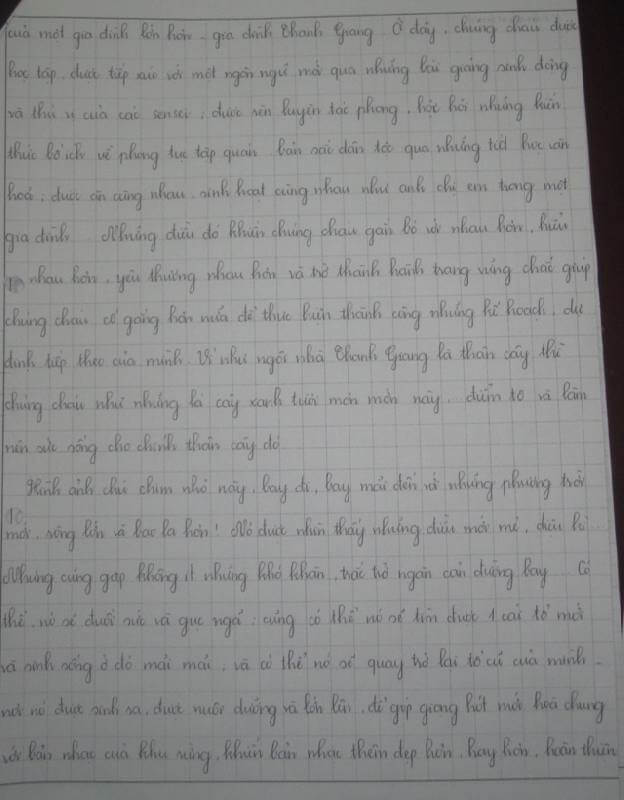 của một gia đình lớn hơn - gia đình Thanh Giang. Ở đây, chúng cháu được
học tập, được tiếp xúc với một ngôn ngữ mới qua những bài giảng sinh động
và thú vị của các sensei; được rèn luyện tác phong, học hỏi những kiến
thức bổ ích về phong tục tập quán, bản sắc dân tộc qua những tiết học văn
hoá; được ăn cùng nhau, sinh hoạt cùng nhau như anh chị em trong một
gia đình. Những điều đó khiến chúng cháu gắn bó với nhau hơn, hiểu
nhau hơn, yêu thương nhau hơn và trở thành hành trang vững chắc giúp
chúng cháu cố gắng hơn nữa để thực hiện thành công những kế hoạch, dự
định tiếp theo của mình. Ví như ngôi nhà Thanh Giang là thân cây thì
chúng cháu như những lá cây xanh tươi mơn mởn này, điểm tô và làm
nên sức sống cho chính thân cây đó.
Hình ảnh chú chim nhỏ này, bay đi, bay mãi đến với những phương trời
mới, rộng lớn và bao la hơn! Nó được nhìn thấy những điều mới mẻ, điều kì
Nhưng cũng gặp không ít những khó khăn, trắc trở ngăn cản đường bay. Có
thể, nó sẽ đuối sức và gục ngã; cũng có thể nó sẽ tìm được 1 cái tổ mới
và sinh sống ở đó mãi mãi; và có thể nó sẽ quay trở lại tổ cũ của mình -
nơi nó được sinh ra, được nuôi dưỡng và lớn lên, để góp giọng hót mới hoà chung
với bản nhạc của khu rừng, khiến bản nhạc thêm đẹp hơn, hay hơn, hoàn thiện